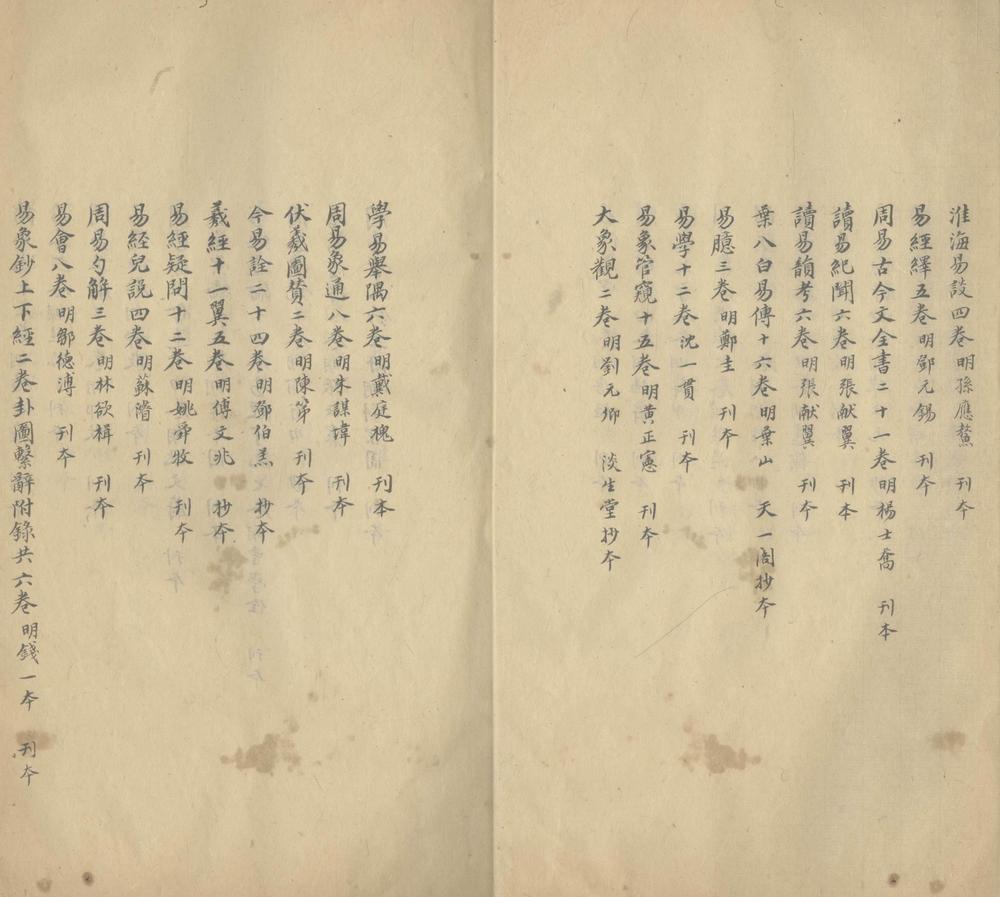 淮海易談四卷明孫應鰲 刊夲
易經繹五卷明鄧元錫 刊夲
周易古今文全書二十一卷明楊士喬 刊本
讀易紀聞六卷明張献翼 刊本
讀易韻考六卷明張献翼 刊夲
葉八白易傳十六卷明葉山 天一阁抄夲
易臆三卷明鄭圭 刊夲
易學十二卷沈一貫 刊夲
易象管窺十五卷明黄正憲 刊夲
大象觀二卷明劉元卿 淡生堂抄夲
學易舉隅六卷明戴庭槐 刊本
周易象通八卷明朱謀㙔 刊夲
伏羲圖贊二卷明陳第 刊夲
今易詮二十四卷明鄧伯羔 抄夲
羲經十一翼五卷明傅文兆 抄夲
易經疑問十二卷明姚舜牧 刊夲
易経兒説四卷明蘇濬 刊夲
周易勺解三卷明林欲楫 刊夲
易會八卷明鄒德溥 刊夲
易象鈔上下經二卷卦圖繫辭附錄共六卷明錢一夲 刊夲